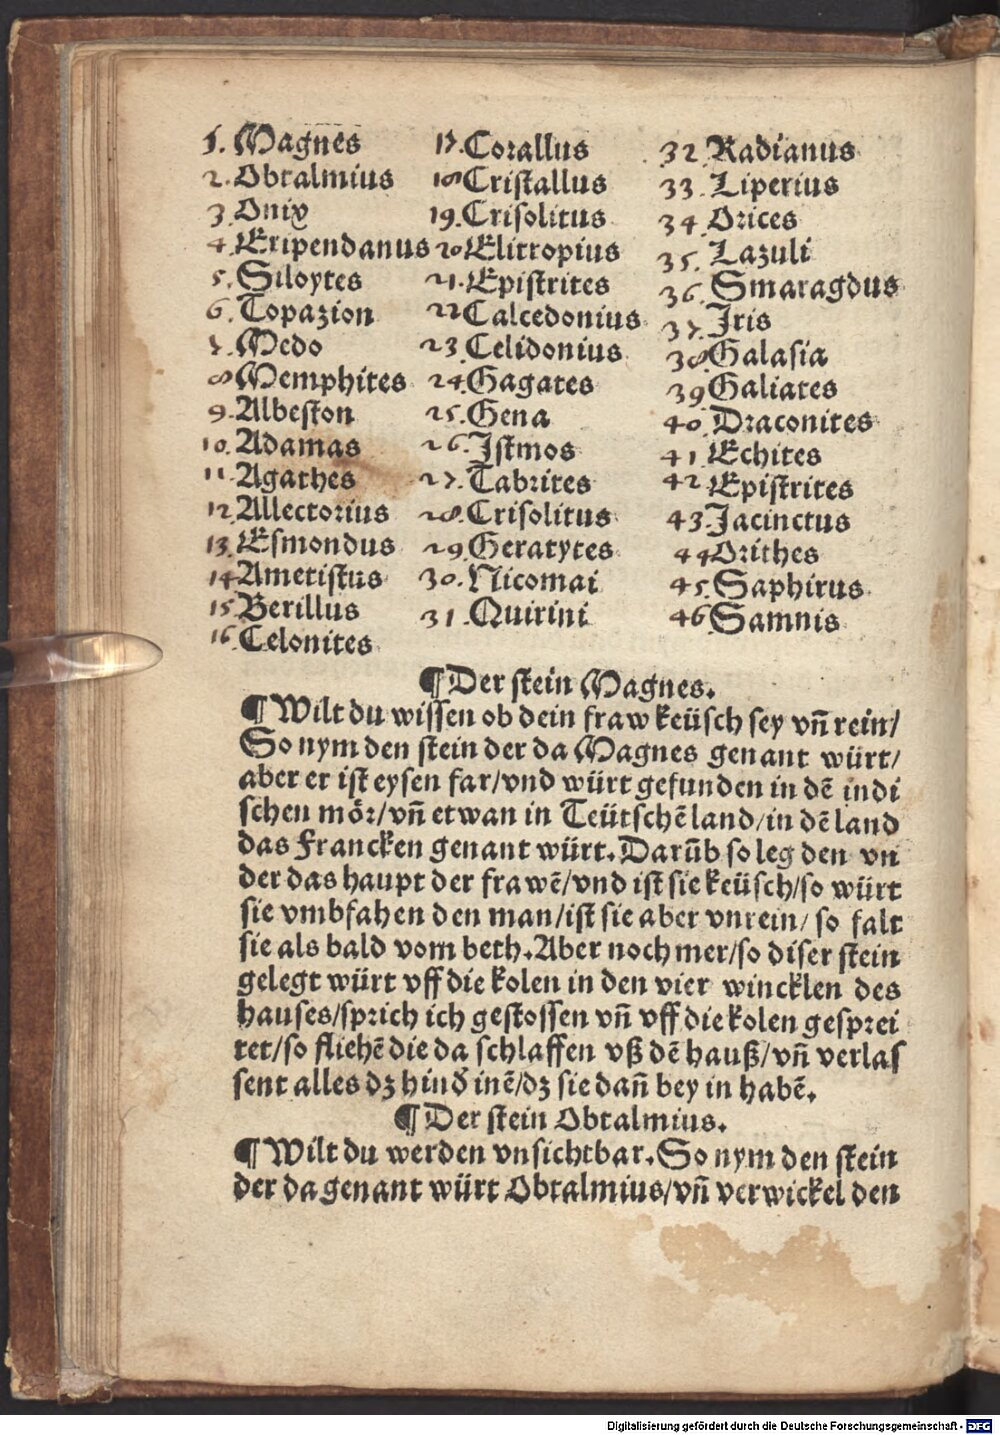 1. Magnes
2. Obtalmius
3 Onix
4. Eripendanus
5. Siloytes
6. Topazion
7. Medo
8 Memphites
9. Albeston
10. Adamas
11 Agathes
12 Allectorius
13. Esmondus
14 Ametistus
15 Berillus
16 Celonites
17. Corallus
18 Cristallus
19. Crisolitus
20 Elitropius
21. Epistrites
22 Calcedonius
23. Celidonius
24 Gagates
25. Gena
26. Istmos
27. Tabrites
28. Crisolitus
29 Geratytes
30. Nicomai
31. Quirini
32 Radianus
33. Liperius
34 Orices
35. Lazuli
36. Smaragdus
37. Iris
38 Galasia
39 Galiates
40. Draconites
41 Echites
42 Epistrites
43. Jacinctus
44 Orithes
45. Saphirus
46 Samnis
¶ Der stein Magnes.
¶ Wilt du wissen ob dein fraw keüsch sey vñ rein/
So nym den stein der da Magnes genant würt/
aber er ist eysen far/vnd würt gefunden in dē indi
schen mör/vñ etwan in Teütschē land/in dē land
das Francken genant würt. Darūb so leg den vn
der das haupt der frawē/vnd ist sie keüsch/so würt
sie vmbfahen den man/ist sie aber vnrein/ so falt
sie als bald vom beth. Aber noch mer/so diser stein
gelegt würt vff die kolen in den vier wincklen des
hauses/sprich ich gestossen vñ vff die kolen gesprei
tet/so fliehē die da schlaffen vß dē hauß/vñ verlas
sent alles dz hind' inē/dz sie dañ bey in habē.
¶ Der stein Obtalmius.
¶ Wilt du werden vnsichtbar. So nym den stein
der da genant würt Obtalmius/vñ verwickel den
Digitalisierung gefördert durch die Deutsche Forschungsgemeinschaft - DFG